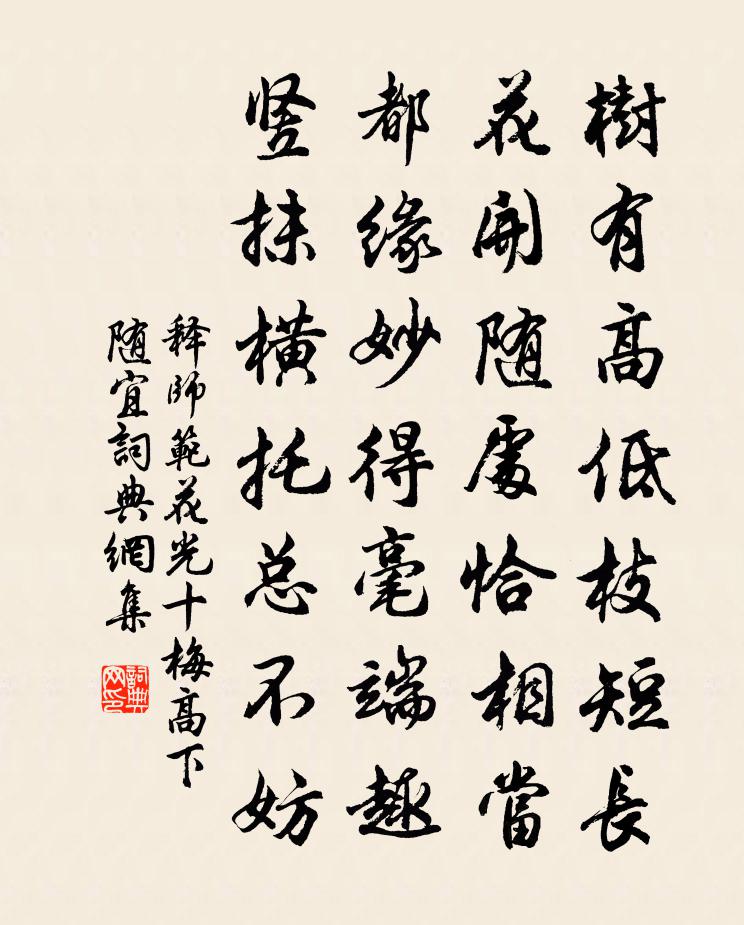 樹有高低枝短長
花開随處恰相當
都缘妙得毫端趣
竖抹橫托总不妨
释師範花光十梅高下
随宜詞典網集
詞典网印